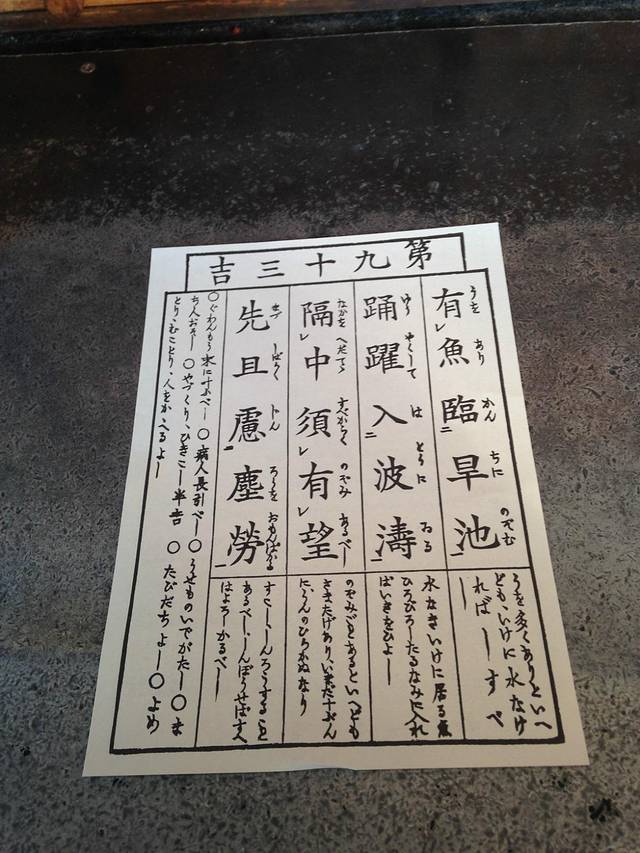 第九十三吉
うを あり かん ちに のぞむ
有レ魚臨二旱池一
ゆう やくして は とうに いる
踊躍入二波濤一
なかを へだてゝ すべからく のぞみ あるべし
隔レ中須レ有レ望
まづ しばらく ぢん ろうを おもんぱかる
先且慮二塵勞一
うを多くありといへ
ども、いけに水なけ
ればしすべ
し
水なきいけに居る魚
ひろびろしたるなみに入れ
ばいきをひよし
のぞみごとあるといへども
さまたげあり、いまだ十ぶん
に、うんのひらかぬなり
すこし、しんろうすること
あるべし、しんぼうせばすへ
はよろしかるべし
○ぐわんもう べし ○病人長引べし○うせものいでがたし○ま
ち人おそし ○やづくり、ひきこし半吉 ○たびだちよし○よめ
とり、むことり、人をかゝへるよし